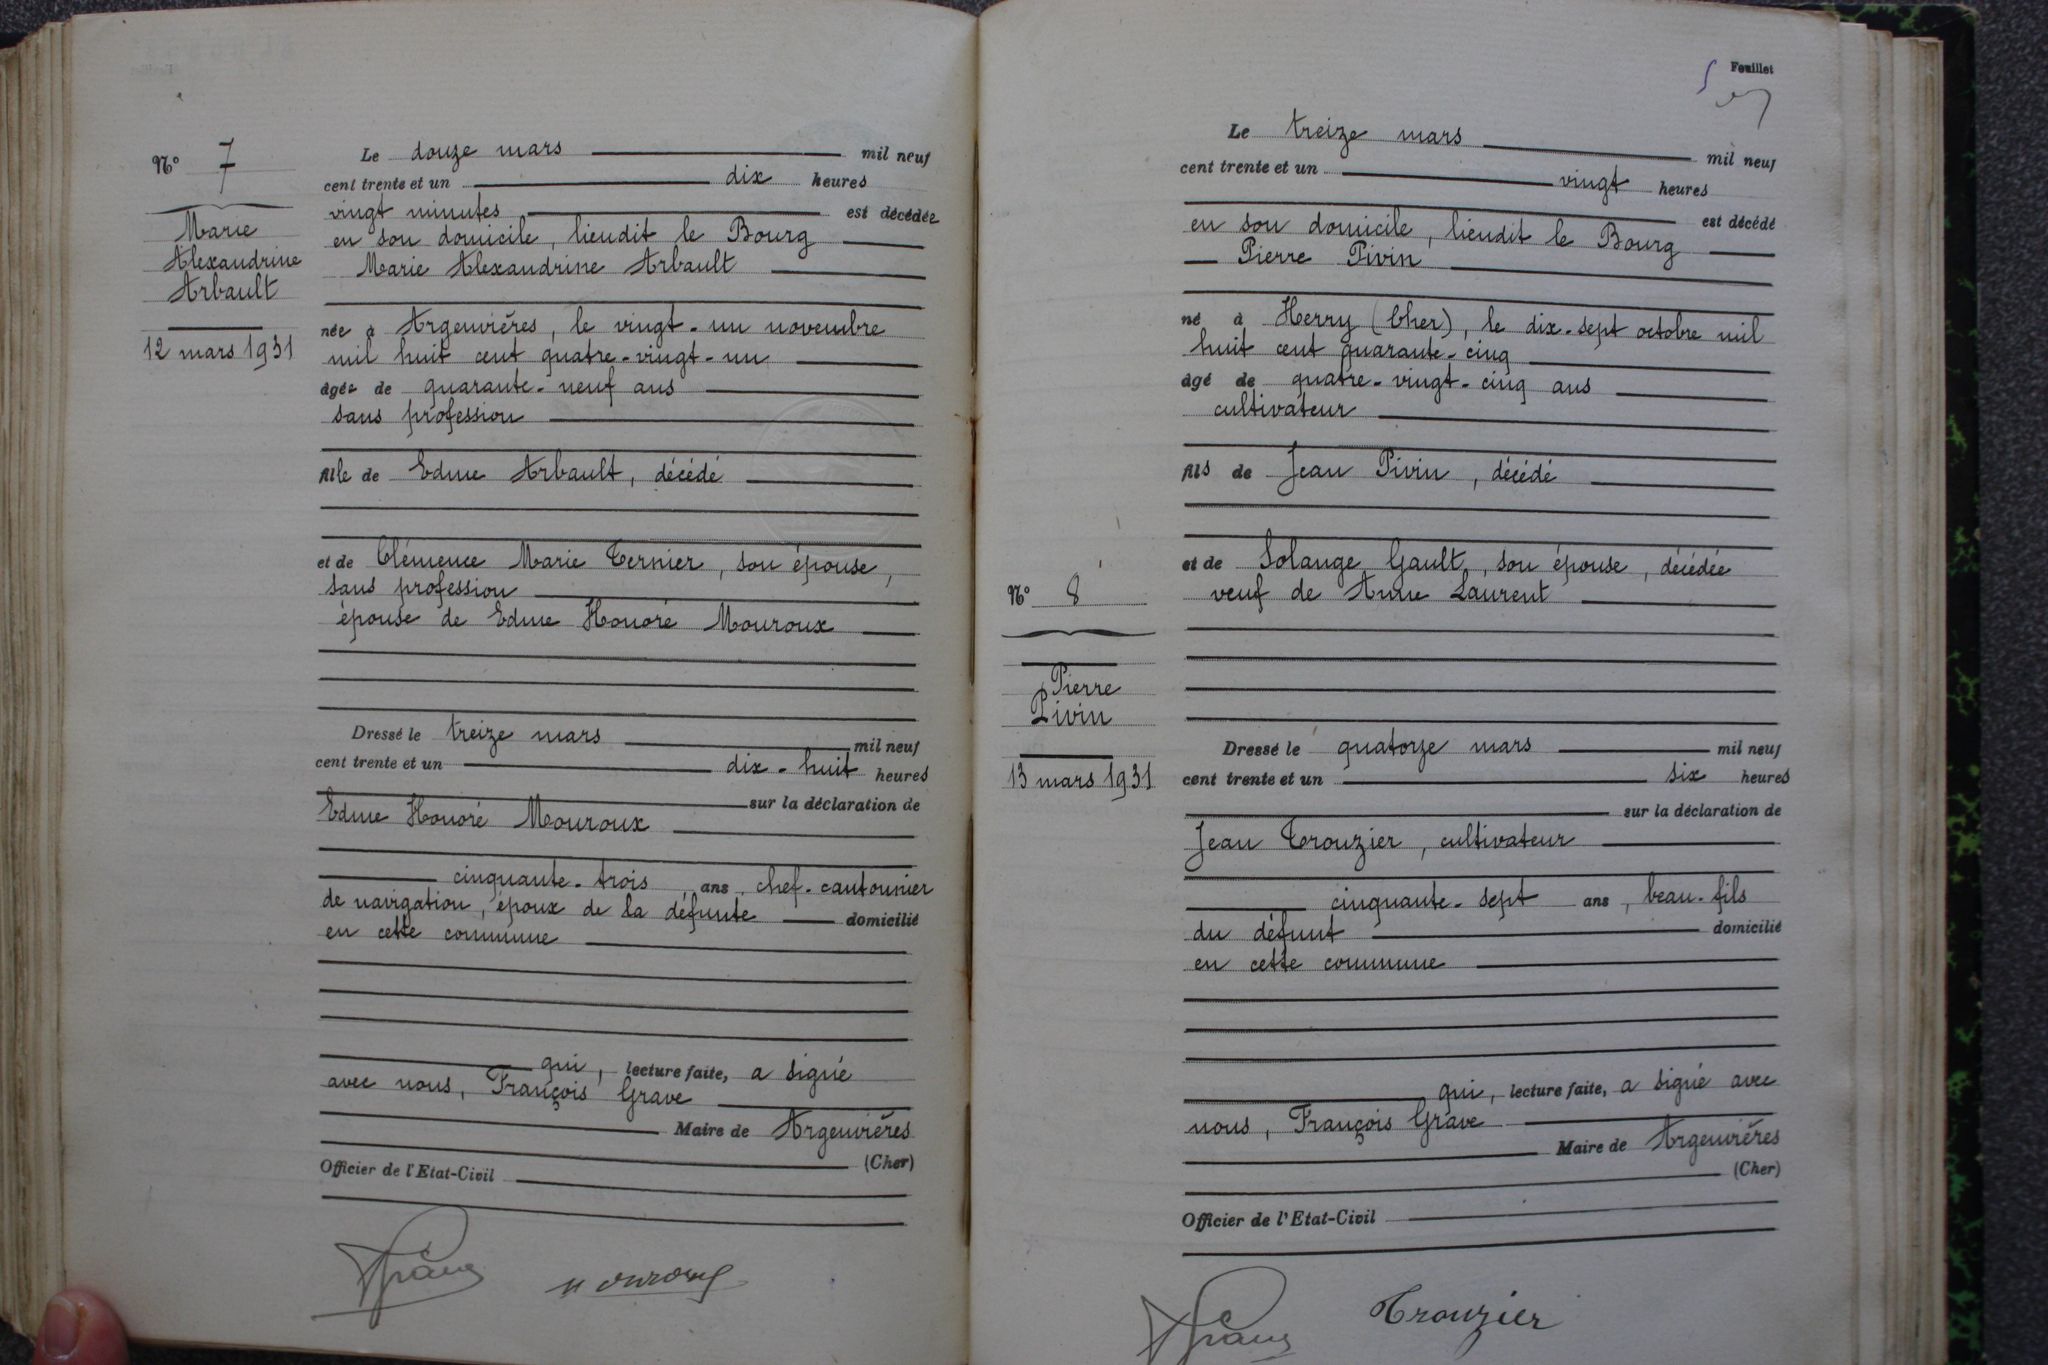 N° 7
Marie
Alexandrine
Arbault
12 mars 1931
Le douze mars mil neuf
cent trente et un dix heures
vingt minutes est décédée
en son domicile, lieudit le Bourg
Marie Alexandrine Arbault
née à Argenvières, le vingt-un novembre
mil huit cent quatre-vingt-un
âgée de quarante-neuf ans
sans profession
fille de Edme Arbault, décédé
et de Clémence Marie Ternier, son épouse,
sans profession
épouse de Edme Honoré Mouroux
Dressé le treize mars mil neuf
cent trente et un dix-huit heures
sur la déclaration de
Edme Honoré Mouroux
cinquante-trois ans, chef-cantonnier
de navigation, époux de la défunte domicilié
en cette commune
qui, lecture faite, a signé
avec nous, François Grave
Maire de Argenvières
(Cher)
Officier de l'Etat-Civil
Mouroux
Feuillet
5
Le treize mars mil neuf
cent trente et un vingt heures
est décédé
en son domicile, lieudit le Bourg
Pierre Pivin
né à Herry (Cher), le dix-sept octobre mil
huit cent quarante-cinq
âgé de quatre-vingt-cinq ans
cultivateur
fils de Jean Pivin, décédé
et de Solange Gault, son épouse, décédée
veuf de Anne Laurent
N° 8
Pierre
Pivin
13 mars 1931
Dressé le quatorze mars mil neuf
cent trente et un six heures
sur la déclaration de
Jean Trouzier, cultivateur
cinquante-sept ans, beau-fils
du défunt domicilié
en cette commune
qui, lecture faite, a signé avec
nous, François Grave
Maire de Argenvières
(Cher)
Officier de l'Etat-Civil
Trouzier